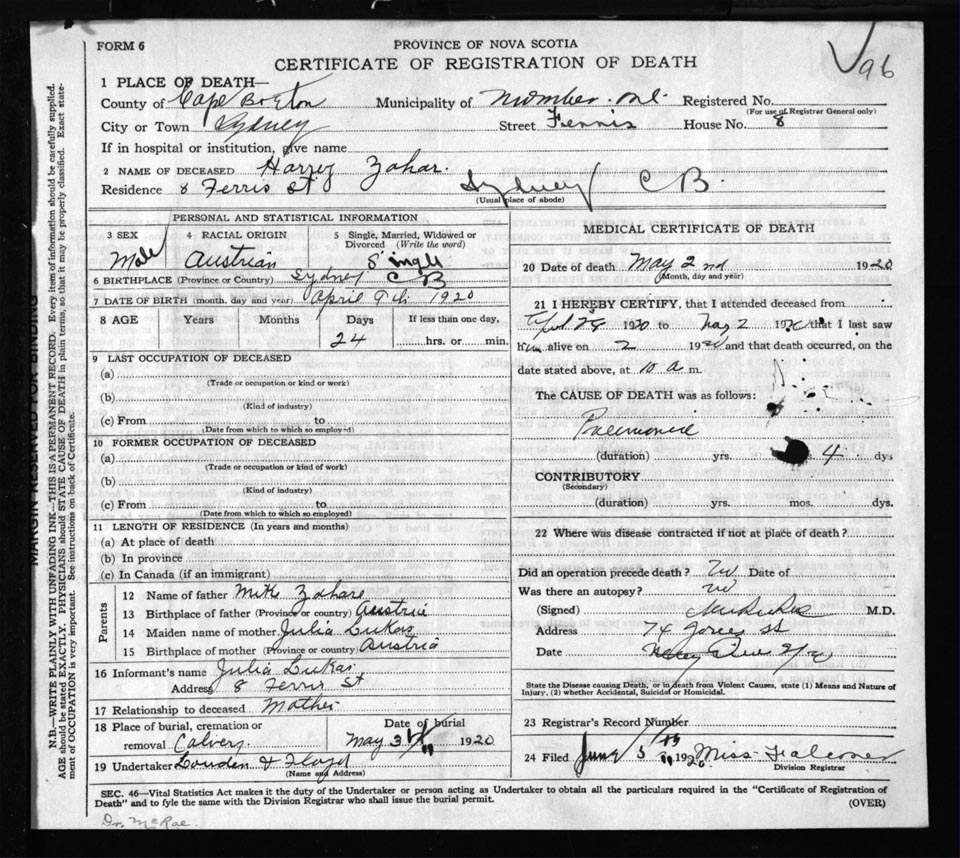 96
FORM 6
PROVINCE OF NOVA SCOTIA
CERTIFICATE OF REGISTRATION OF DEATH
MARGIN RESERVED FOR BINDING
N.B.—WRITE PLAINLY WITH UNFADING INK—THIS IS A PERMANENT RECORD. Every item of information should be carefully supplied.
AGE should be stated EXACTLY. PHYSICIANS should STATE CAUSE OF DEATH in plain terms, so that it may be properly classified. Exact state-
ment of OCCUPATION is very important. See instructions on back of Certificate.
1 PLACE OF DEATH—
County of Cape Breton Municipality of Registered No.
(For use of Registrar General only)
City or Town Sydney Street Ferris House No. 8
If in hospital or institution, give name
2 NAME OF DECEASED Harry Zahar.
Residence 8 Ferris St Sydney C B.
(Usual place of abode)
PERSONAL AND STATISTICAL INFORMATION
3 SEX 4 RACIAL ORIGIN 5 Single, Married, Widowed or
Divorced (Write the word)
Male Austrian Single
6 BIRTHPLACE (Province or Country) Sydney C B
7 DATE OF BIRTH (month, day and year) April 9th 1920
8 AGE Years Months Days If less than one day,
24 hrs. or min.
9 LAST OCCUPATION OF DECEASED
(a)
(Trade or occupation or kind or work)
(b)
(Kind of industry)
(c) From to
(Date from which to which so employed)
10 FORMER OCCUPATION OF DECEASED
(a)
(Trade or occupation or kind or work)
(b)
(Kind of industry)
(c) From to
(Date from which to which so employed)
11 LENGTH OF RESIDENCE (In years and months)
(a) At place of death
(b) In province
(c) In Canada (if an immigrant)
Parents
12 Name of father Mike Zahare
13 Birthplace of father (Province or country) Austria
14 Maiden name of mother Julia Lukas
15 Birthplace of mother (Province or country) Austria
16 Informant's name Julia Lukas
Address 8 Ferris St
17 Relationship to deceased Mother
18 Place of burial, cremation or Date of burial
removal Calvery May 3 1920
19 Undertaker Louden & Floyd
(Name and Address)
MEDICAL CERTIFICATE OF DEATH
20 Date of death May 2nd 1920
(Month, day and year)
21 I HEREBY CERTIFY, that I attended deceased from
April 28 1920 to May 2 1920 that I last saw
him alive on 2 1920 and that death occurred, on the
date stated above, at 10 a m.
The CAUSE OF DEATH was as follows:
Pneumonia
(duration) yrs. 4 dys
CONTRIBUTORY
(Secondary)
(duration) yrs. mos. dys.
22 Where was disease contracted if not at place of death?
Did an operation precede death? No Date of
Was there an autopsy? No
(Signed) M.D.
Address 74 St
Date
State the Disease causing Death, or in death from Violent Causes, state (1) Means and Nature of
Injury, (2) whether Accidental, Suicidal or Homicidal.
23 Registrar's Record Number
24 Filed June 5 1920 Miss Falconer
Division Registrar
SEC. 46—Vital Statistics Act makes it the duty of the Undertaker or person acting as Undertaker to obtain all the particulars required in the "Certificate of Registration of
Death" and to fyle the same with the Division Registrar who shall issue the burial permit.
(OVER)
Dr. McRae.